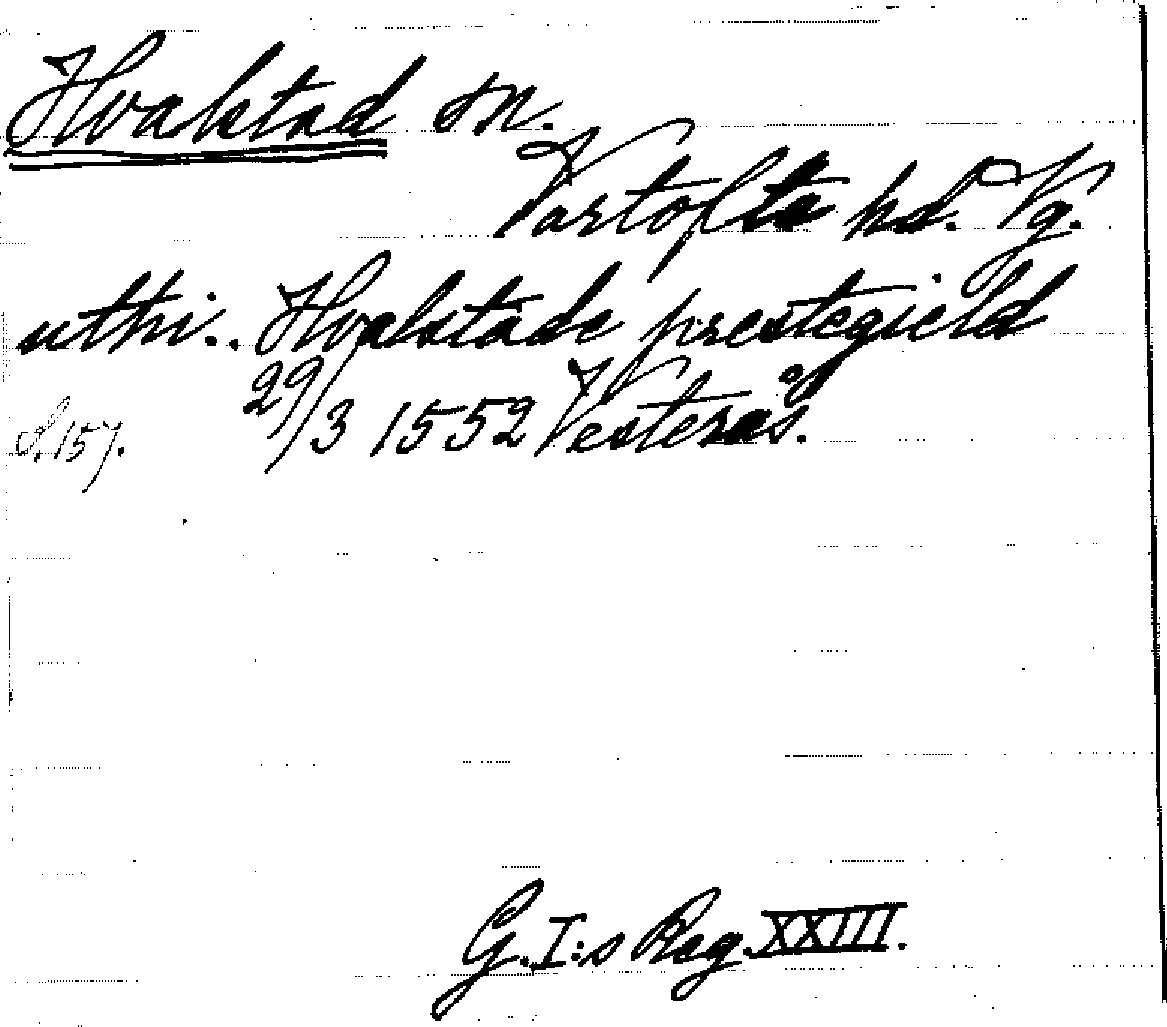 Hvalstad sn.
Vartofta hd. Vg.
uthi.. Hvalstade prestegield
29/3 1552 Vesterås.
S. 157.
G. I:s Reg. XXIII.